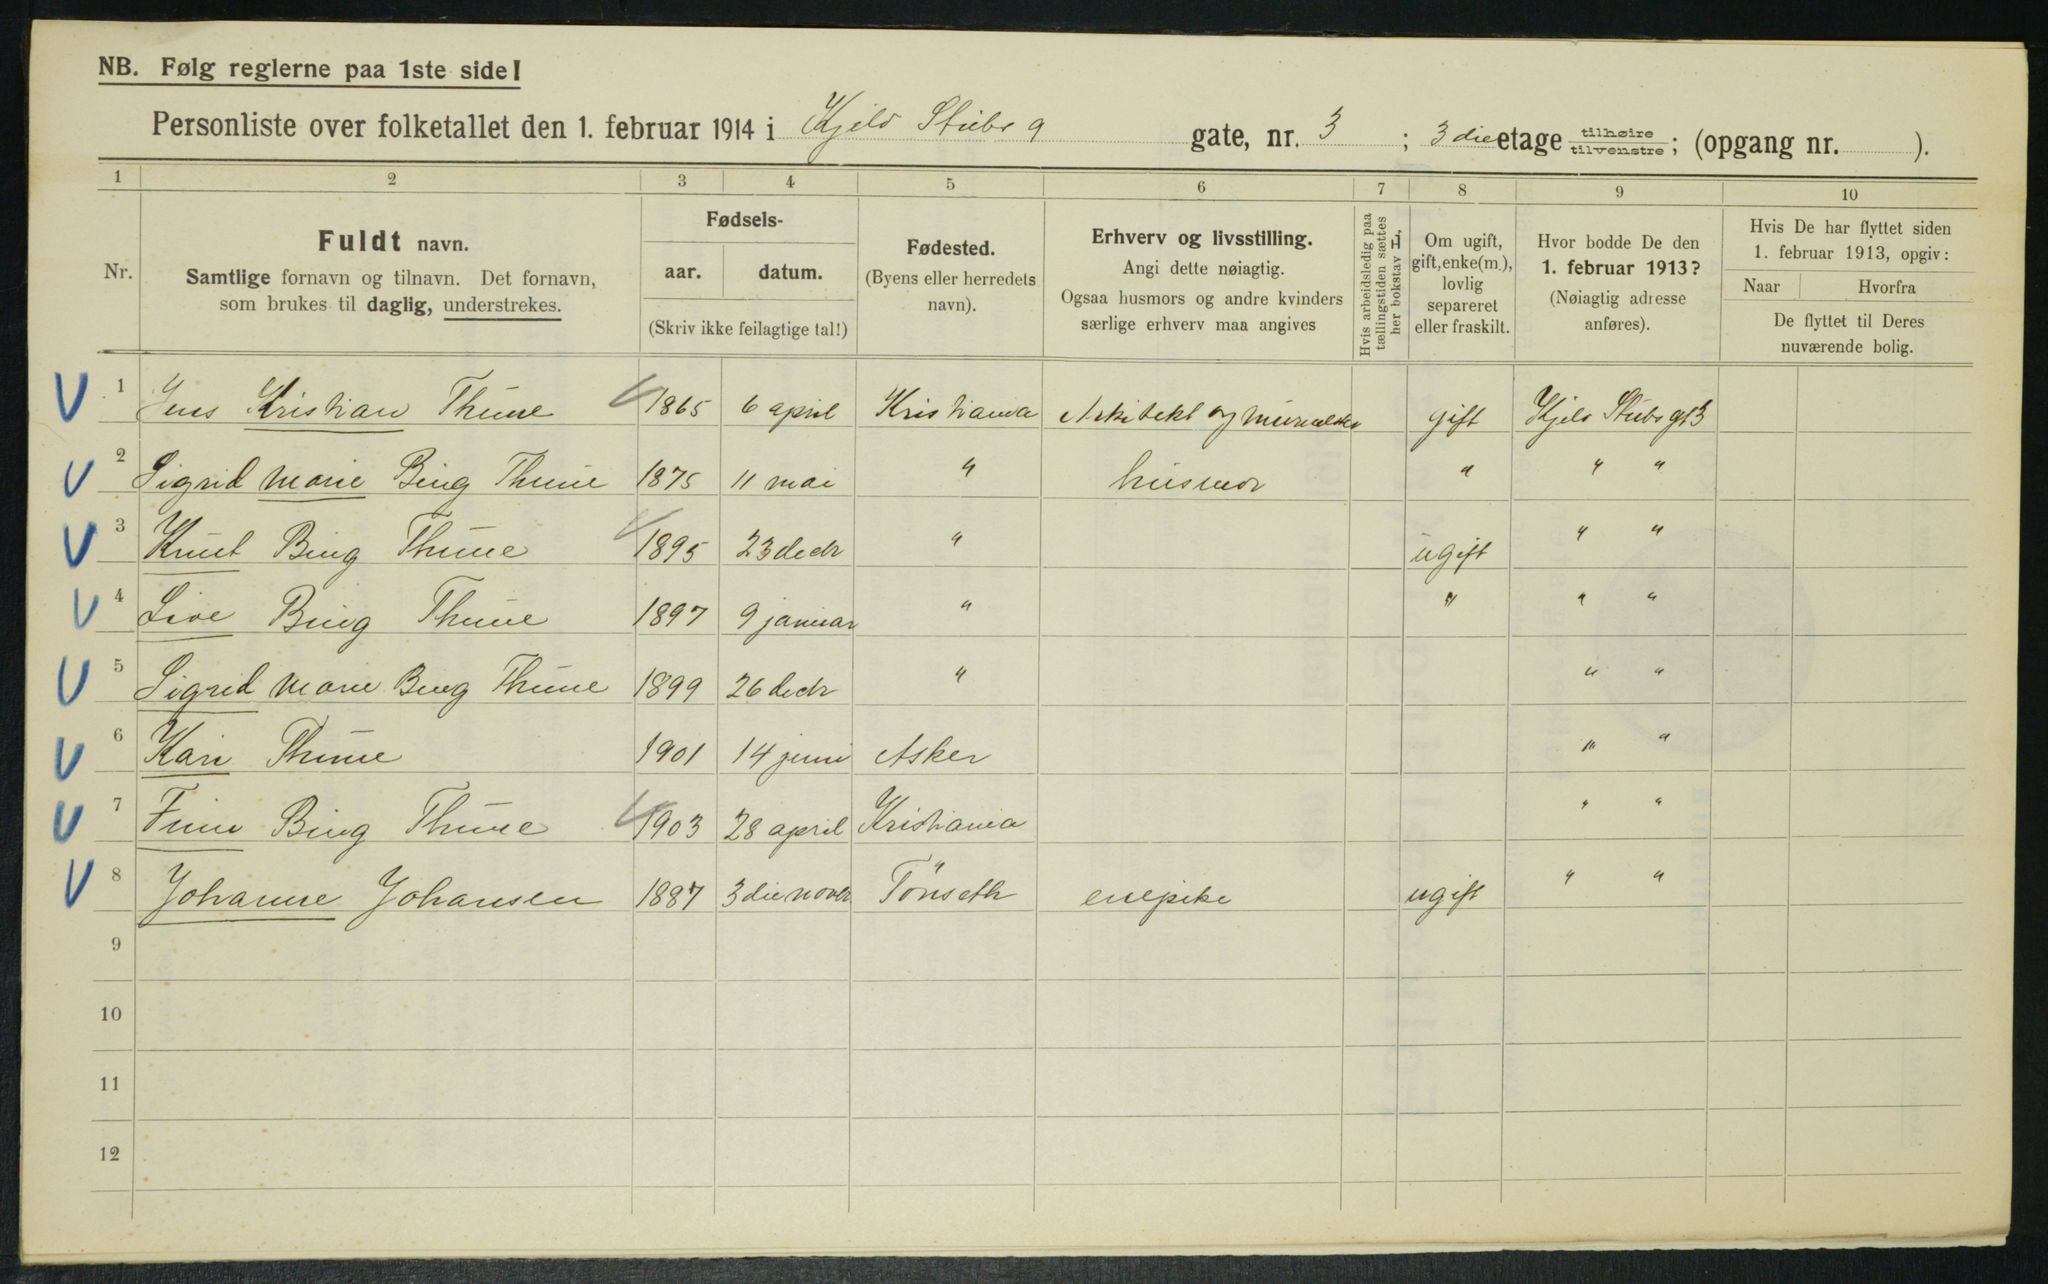 NB. Følg reglerne paa 1ste side!
Personliste over folketallet den 1. februar 1914 i Kjeld Stubs g gate, nr. 3 ; 3die etage tilhøire tilvenstre ; (opgang nr. ).
1 2 3 4 5 6 7 8 9 10
Nr.
Fuldt navn.
Samtlige fornavn og tilnavn. Det fornavn,
som brukes til daglig, understrekes.
Fødsels-
aar. datum.
(Skriv ikke feilagtige tal!)
Fødested.
(Byens eller herredets
navn).
Erhverv og livsstilling.
Angi dette nøiagtig.
Ogsaa husmors og andre kvinders
særlige erhverv maa angives
Hvis arbeidsledig paa
tællingstiden sættes
her bokstav L,
Om ugift,
gift, enke(m.),
lovlig
separeret
eller fraskilt.
Hvor bodde De den
1. februar 1913?
(Nøiagtig adresse
anføres).
Hvis De har flyttet siden
1. februar 1913, opgiv:
Naar Hvorfra
De flyttet til Deres
nuværende bolig.
1 Jens Kristian Thune 1865 6 april Kristiania Arkitekt og gift Kjeld Stubs gt 3
2 Sigrid Marie Bing Thune 1875 11 mai " husmor " " "
3 Knut Bing Thune 1895 23 decbr " ugift " "
4 Live Bing Thune 1897 9 januar " " " "
5 Sigrid Marie Bing Thune 1899 26 decbr " " "
6 Kari Thune 1901 14 juni Asker " "
7 Finn Bing Thune 1903 28 april Kristiania " "
8 Johanne Johansen 1887 3die novbr Tönseth enepike ugift " "
9
10
11
12